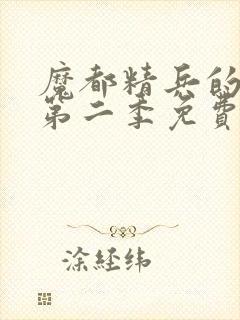 魔都精兵的
第二季免費
涂経纬